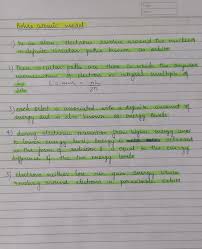 Bohr's atomic model
1) In an atom, electrons revolve around the nucleus
in definite circular paths known as orbits
2) These circular paths are those in which the angular
momentum of electron is integral multiple of
L = mvr = nh
2π
3) each orbit is associated with a definite amount of
energy and also known as energy levels
4) during electronic transition from higher energy level
to lower energy level energy is released
in the form of radiation & is equal to the energy
difference of the two energy levels
5) electrons neither lose nor gain energy when
revolving around electrons in permissible orbits